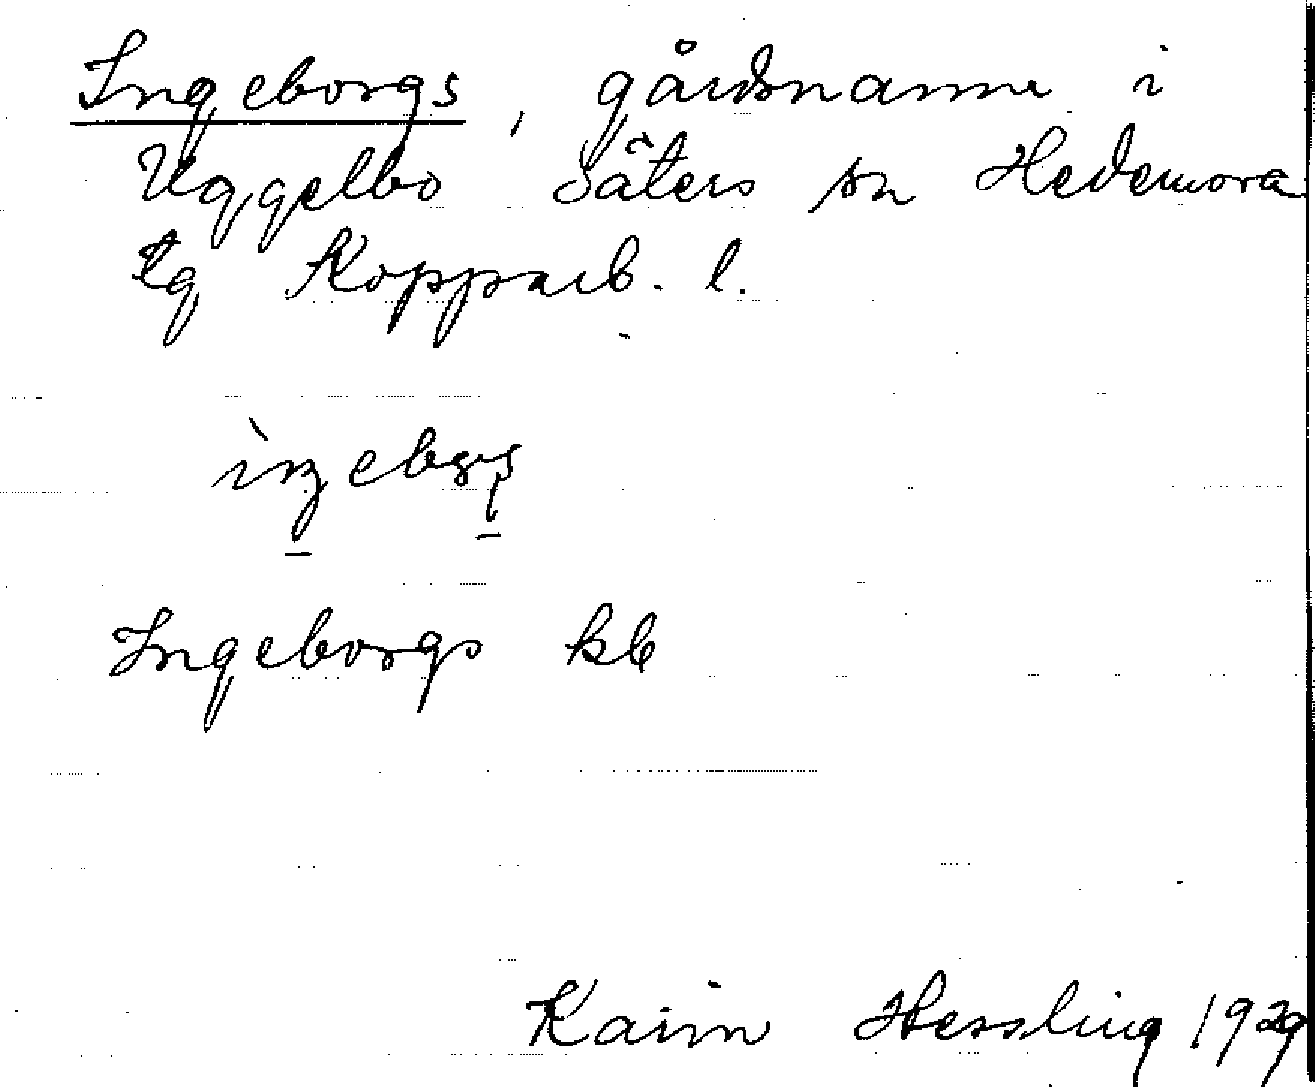 Ingeborgs, gårdsnamn i
Uggelbo Säters sn Hedemora
tg Kopparb. l.
Ingeborgs kb
Karin Hessling 1929